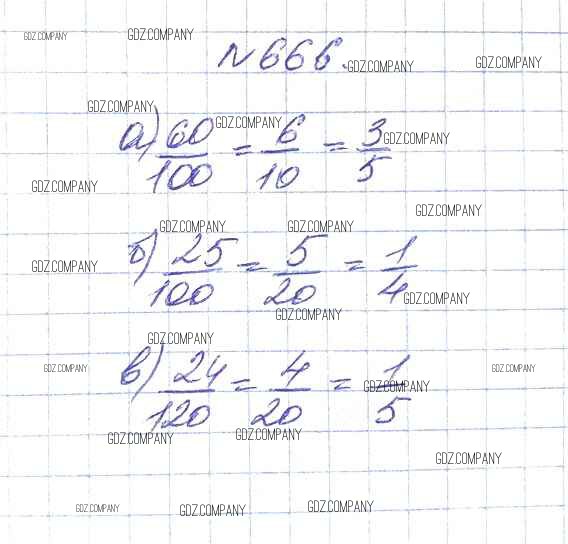 GDZ.COMPANY GDZ.COMPANY
N666. GDZ.COMPANY GDZ.COMPANY
GDZ.COMPANY
а) 60/100 = 6/10 = 3/5 GDZ.COMPANY GDZ.COMPANY
GDZ.COMPANY
GDZ.COMPANY
GDZ.COMPANY GDZ.COMPANY
б) 25/100 = 5/20 = 1/4 GDZ.COMPANY GDZ.COMPANY
GDZ.COMPANY
GDZ.COMPANY
в) 24/120 = 4/20 = 1/5 GDZ.COMPANY GDZ.COMPANY GDZ.COMPANY
GDZ.COMPANY GDZ.COMPANY
GDZ.COMPANY
GDZ.COMPANY GDZ.COMPANY GDZ.COMPANY